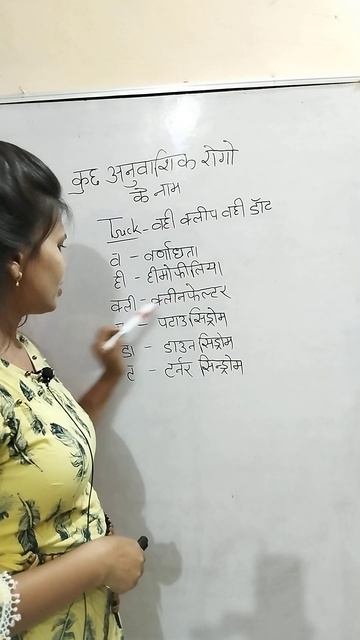 कुछ अनुवांशिक रोगो
के नाम
Trick - वही क्लीप वही डॉट
व - वर्णांधता
ही - हीमोफीलिया
क्ली - क्लीनफेल्टर
- पटाउ सिंड्रोम
डा - डाउन सिंड्रोम
ट - टर्नर सिन्ड्रोम